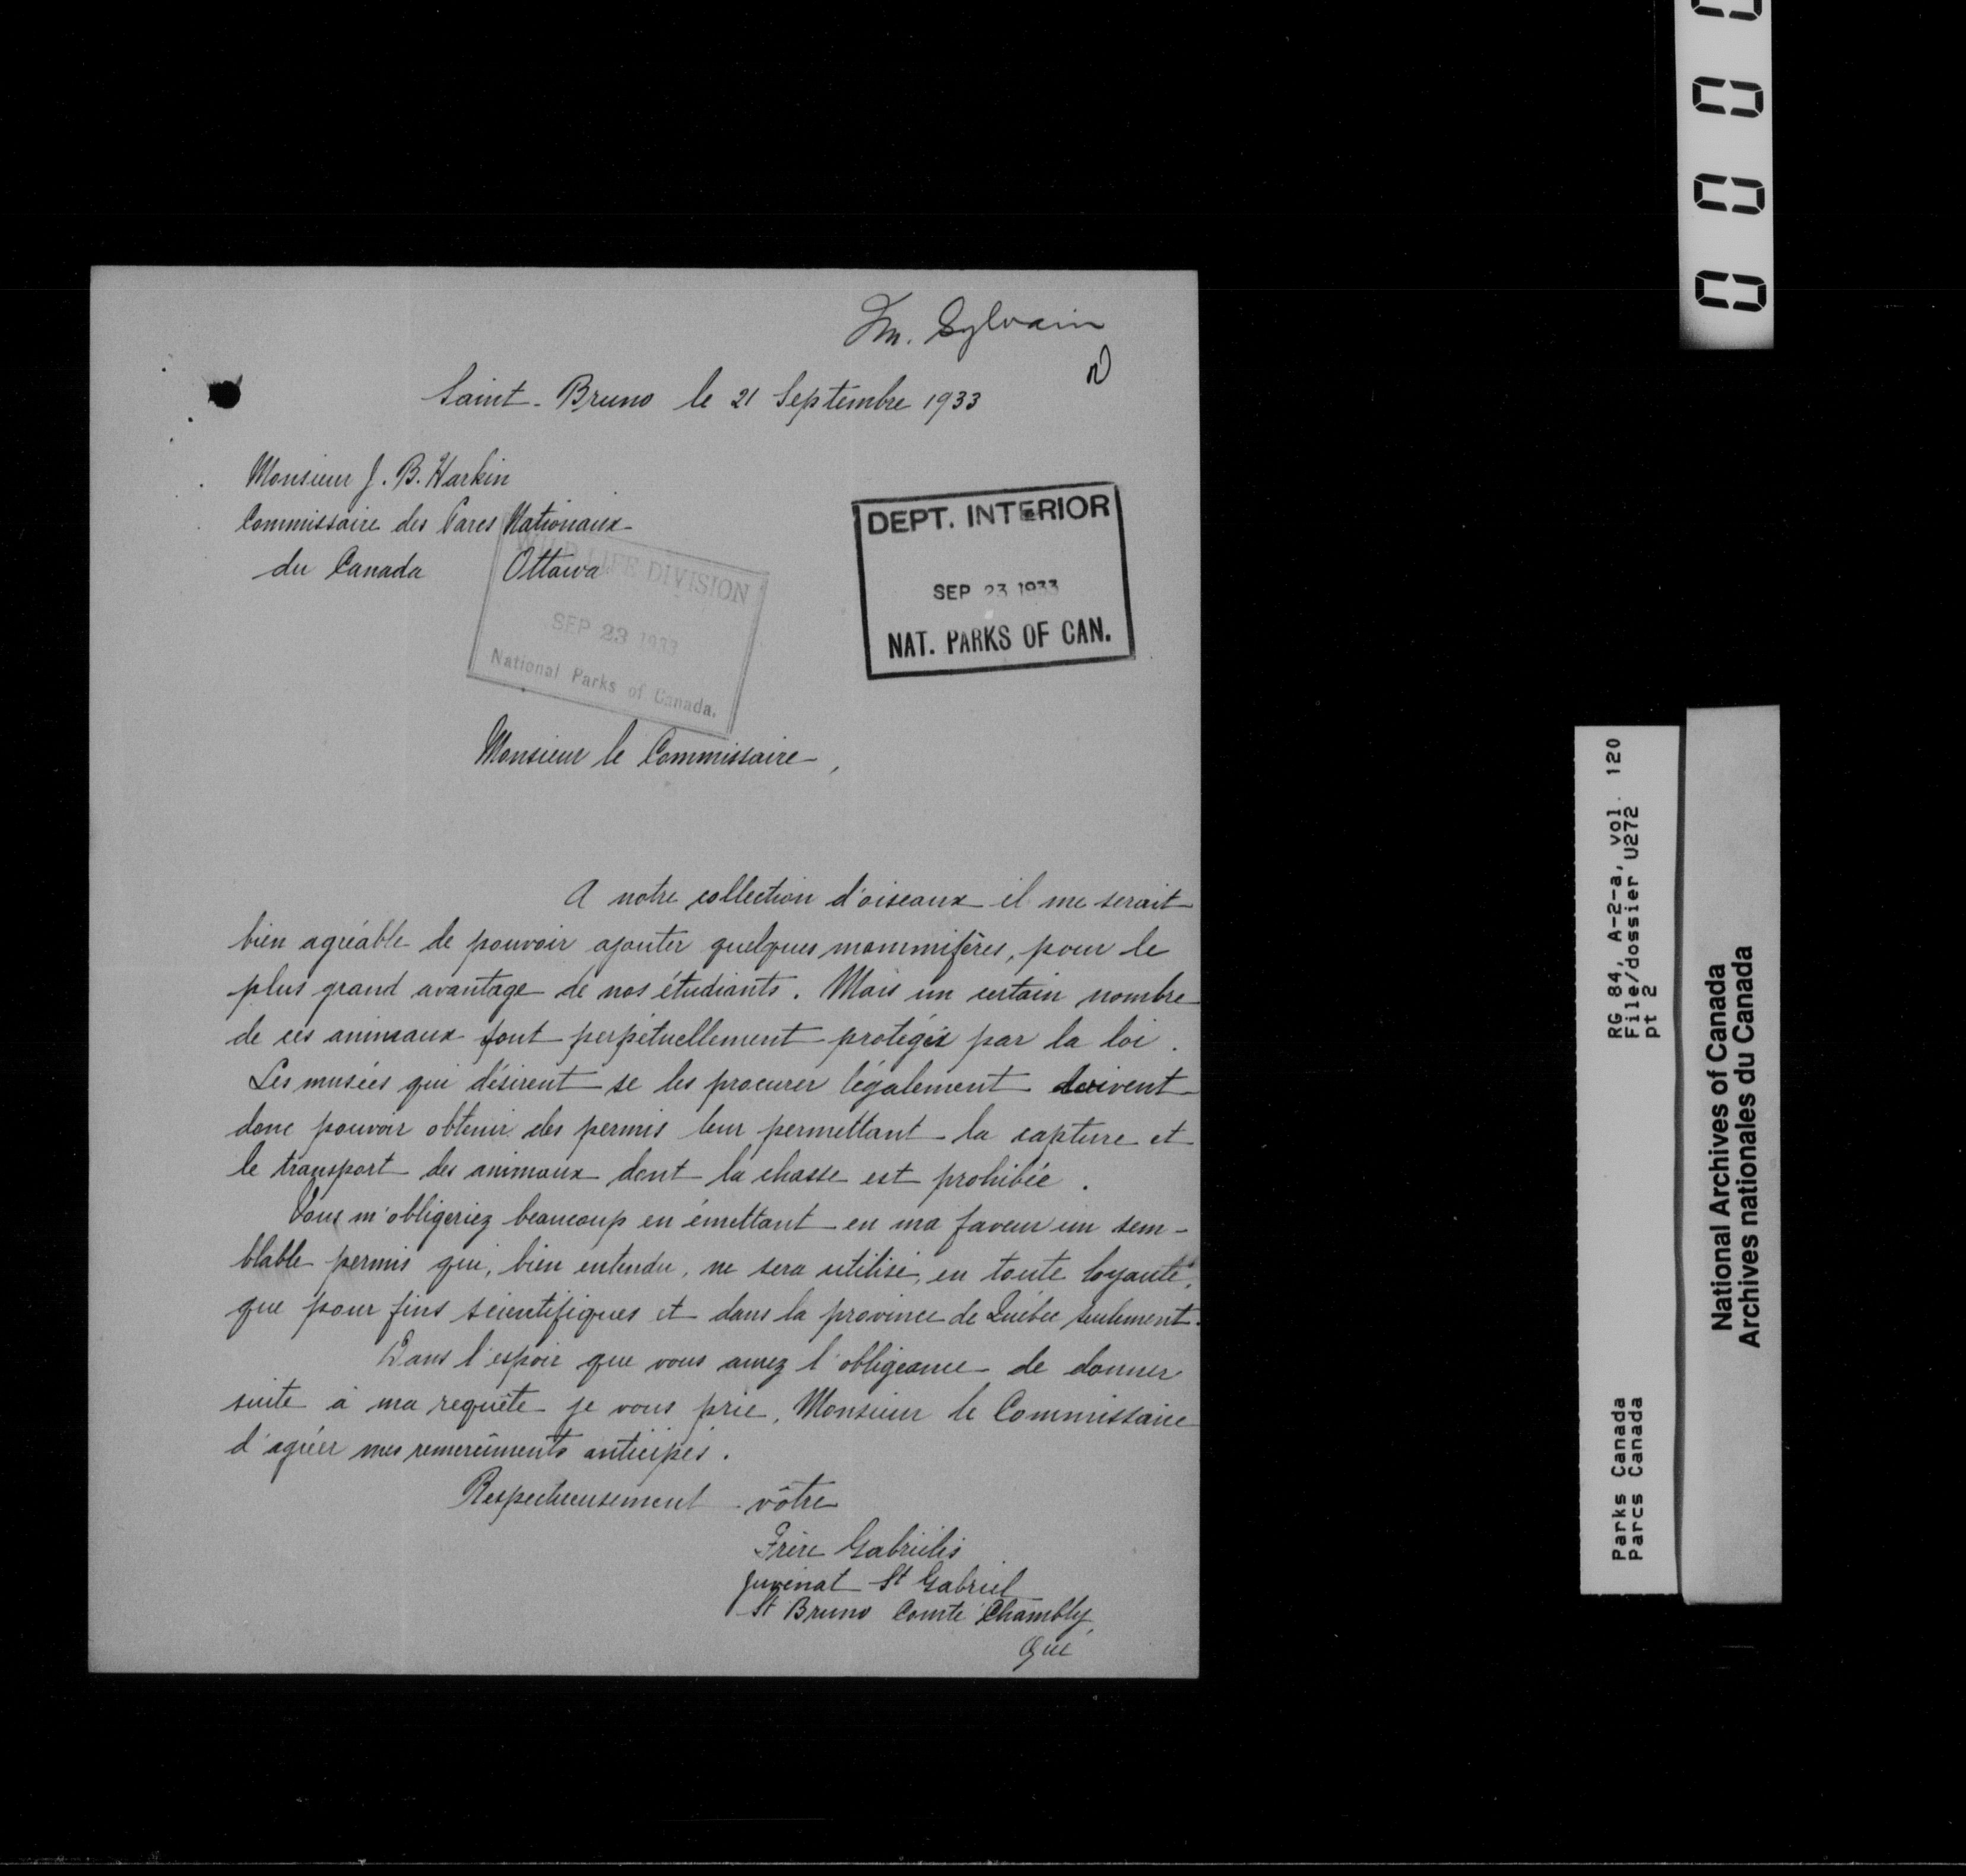 M. Sylvain
Saint-Bruno le 21 Septembre 1933
Monsieur J. B. Harkin
Commissaire des Parcs Nationaux
du Canada Ottawa
WILD LIFE DIVISION
SEP 23 1933
National Parks of Canada.
DEPT. INTERIOR
SEP 23 1933
NAT. PARKS OF CAN.
Monsieur le Commissaire,
A notre collection d'oiseaux il me serait
bien agréable de pouvoir ajouter quelques mammifères, pour le
plus grand avantage de nos étudiants. Mais un certain nombre
de ces animaux sont perpétuellement protégés par la loi.
Les musées qui désirent se les procurer légalement doivent
donc pouvoir obtenir des permis leur permettant la capture et
le transport des animaux dont la chasse est prohibée.
Vous m'obligeriez beaucoup en émettant en ma faveur un sem-
blable permis qui, bien entendu, ne sera utilisé, en toute loyauté,
que pour fins scientifiques et dans la province de Québec seulement.
Dans l'espoir que vous aurez l'obligeance de donner
suite à ma requête je vous prie, Monsieur le Commissaire
d'agréer mes remercîments anticipés.
Respectueusement vôtre
Frère Gabriélis
Juvénat St Gabriel
St Bruno Comté Chambly,
Qué
0 0 0 0
RG 84, A-2-a, vol. 120
File/dossier U272
pt 2
Parks Canada
Parcs Canada
National Archives of Canada
Archives nationales du Canada